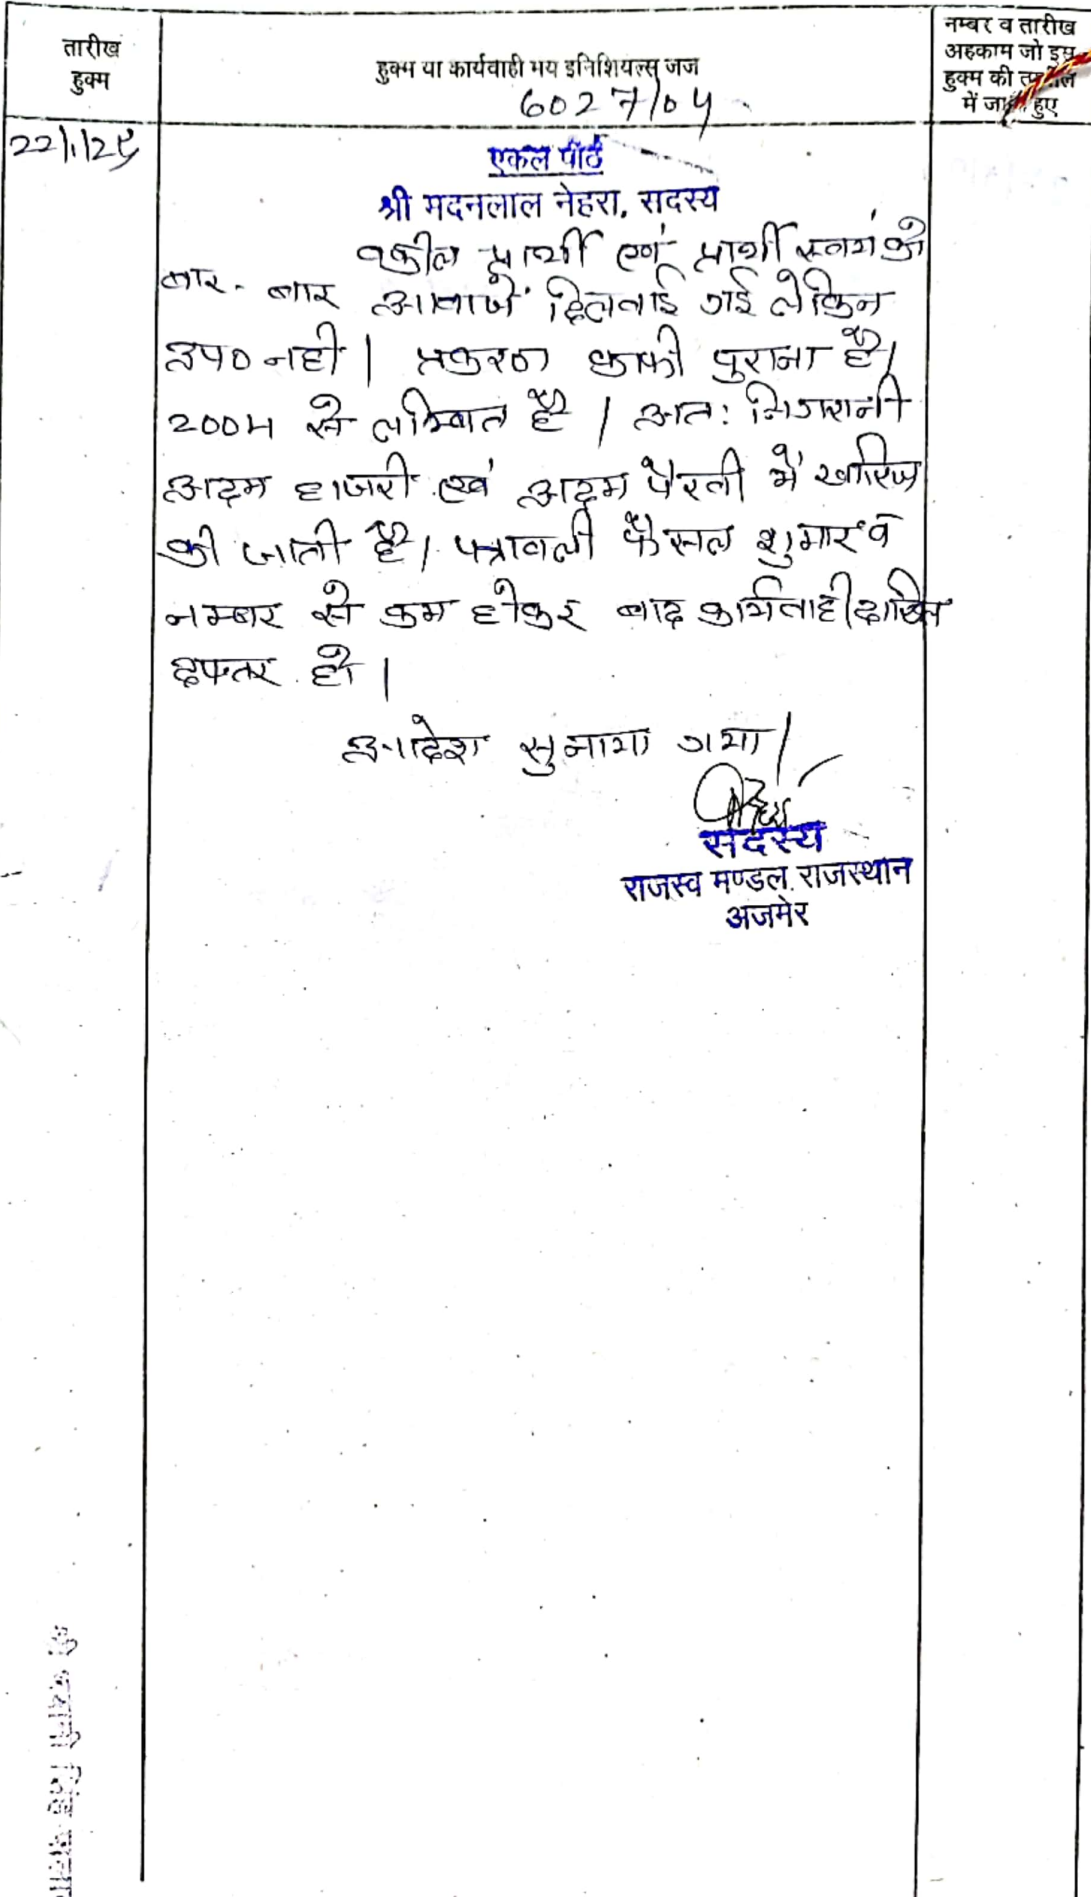 तारीख
हुक्म
हुक्म या कार्यवाही मय इनिशियल्स जज
नम्बर व तारीख
अहकाम जो इस
हुक्म की तामील
में जारी हुए
6027/04
22/1/25
एकल पीठ
श्री मदनलाल नेहरा, सदस्य
वकील प्रार्थी एवं प्रार्थी स्वयं को
बार-बार आवाजें दिलवाई गई लेकिन
उप० नही। प्रकरण काफी पुराना है।
2004 से लम्बित है। अतः निगरानी
अदम हाजरी एवं अदम पैरवी में खारिज
की जाती है। पत्रावली फैसल शुमार व
नम्बर से कम होकर बाद कार्यवाही दाखिल
दफ्तर हो।
आदेश सुनाया गया।
सदस्य
राजस्व मण्डल, राजस्थान
अजमेर